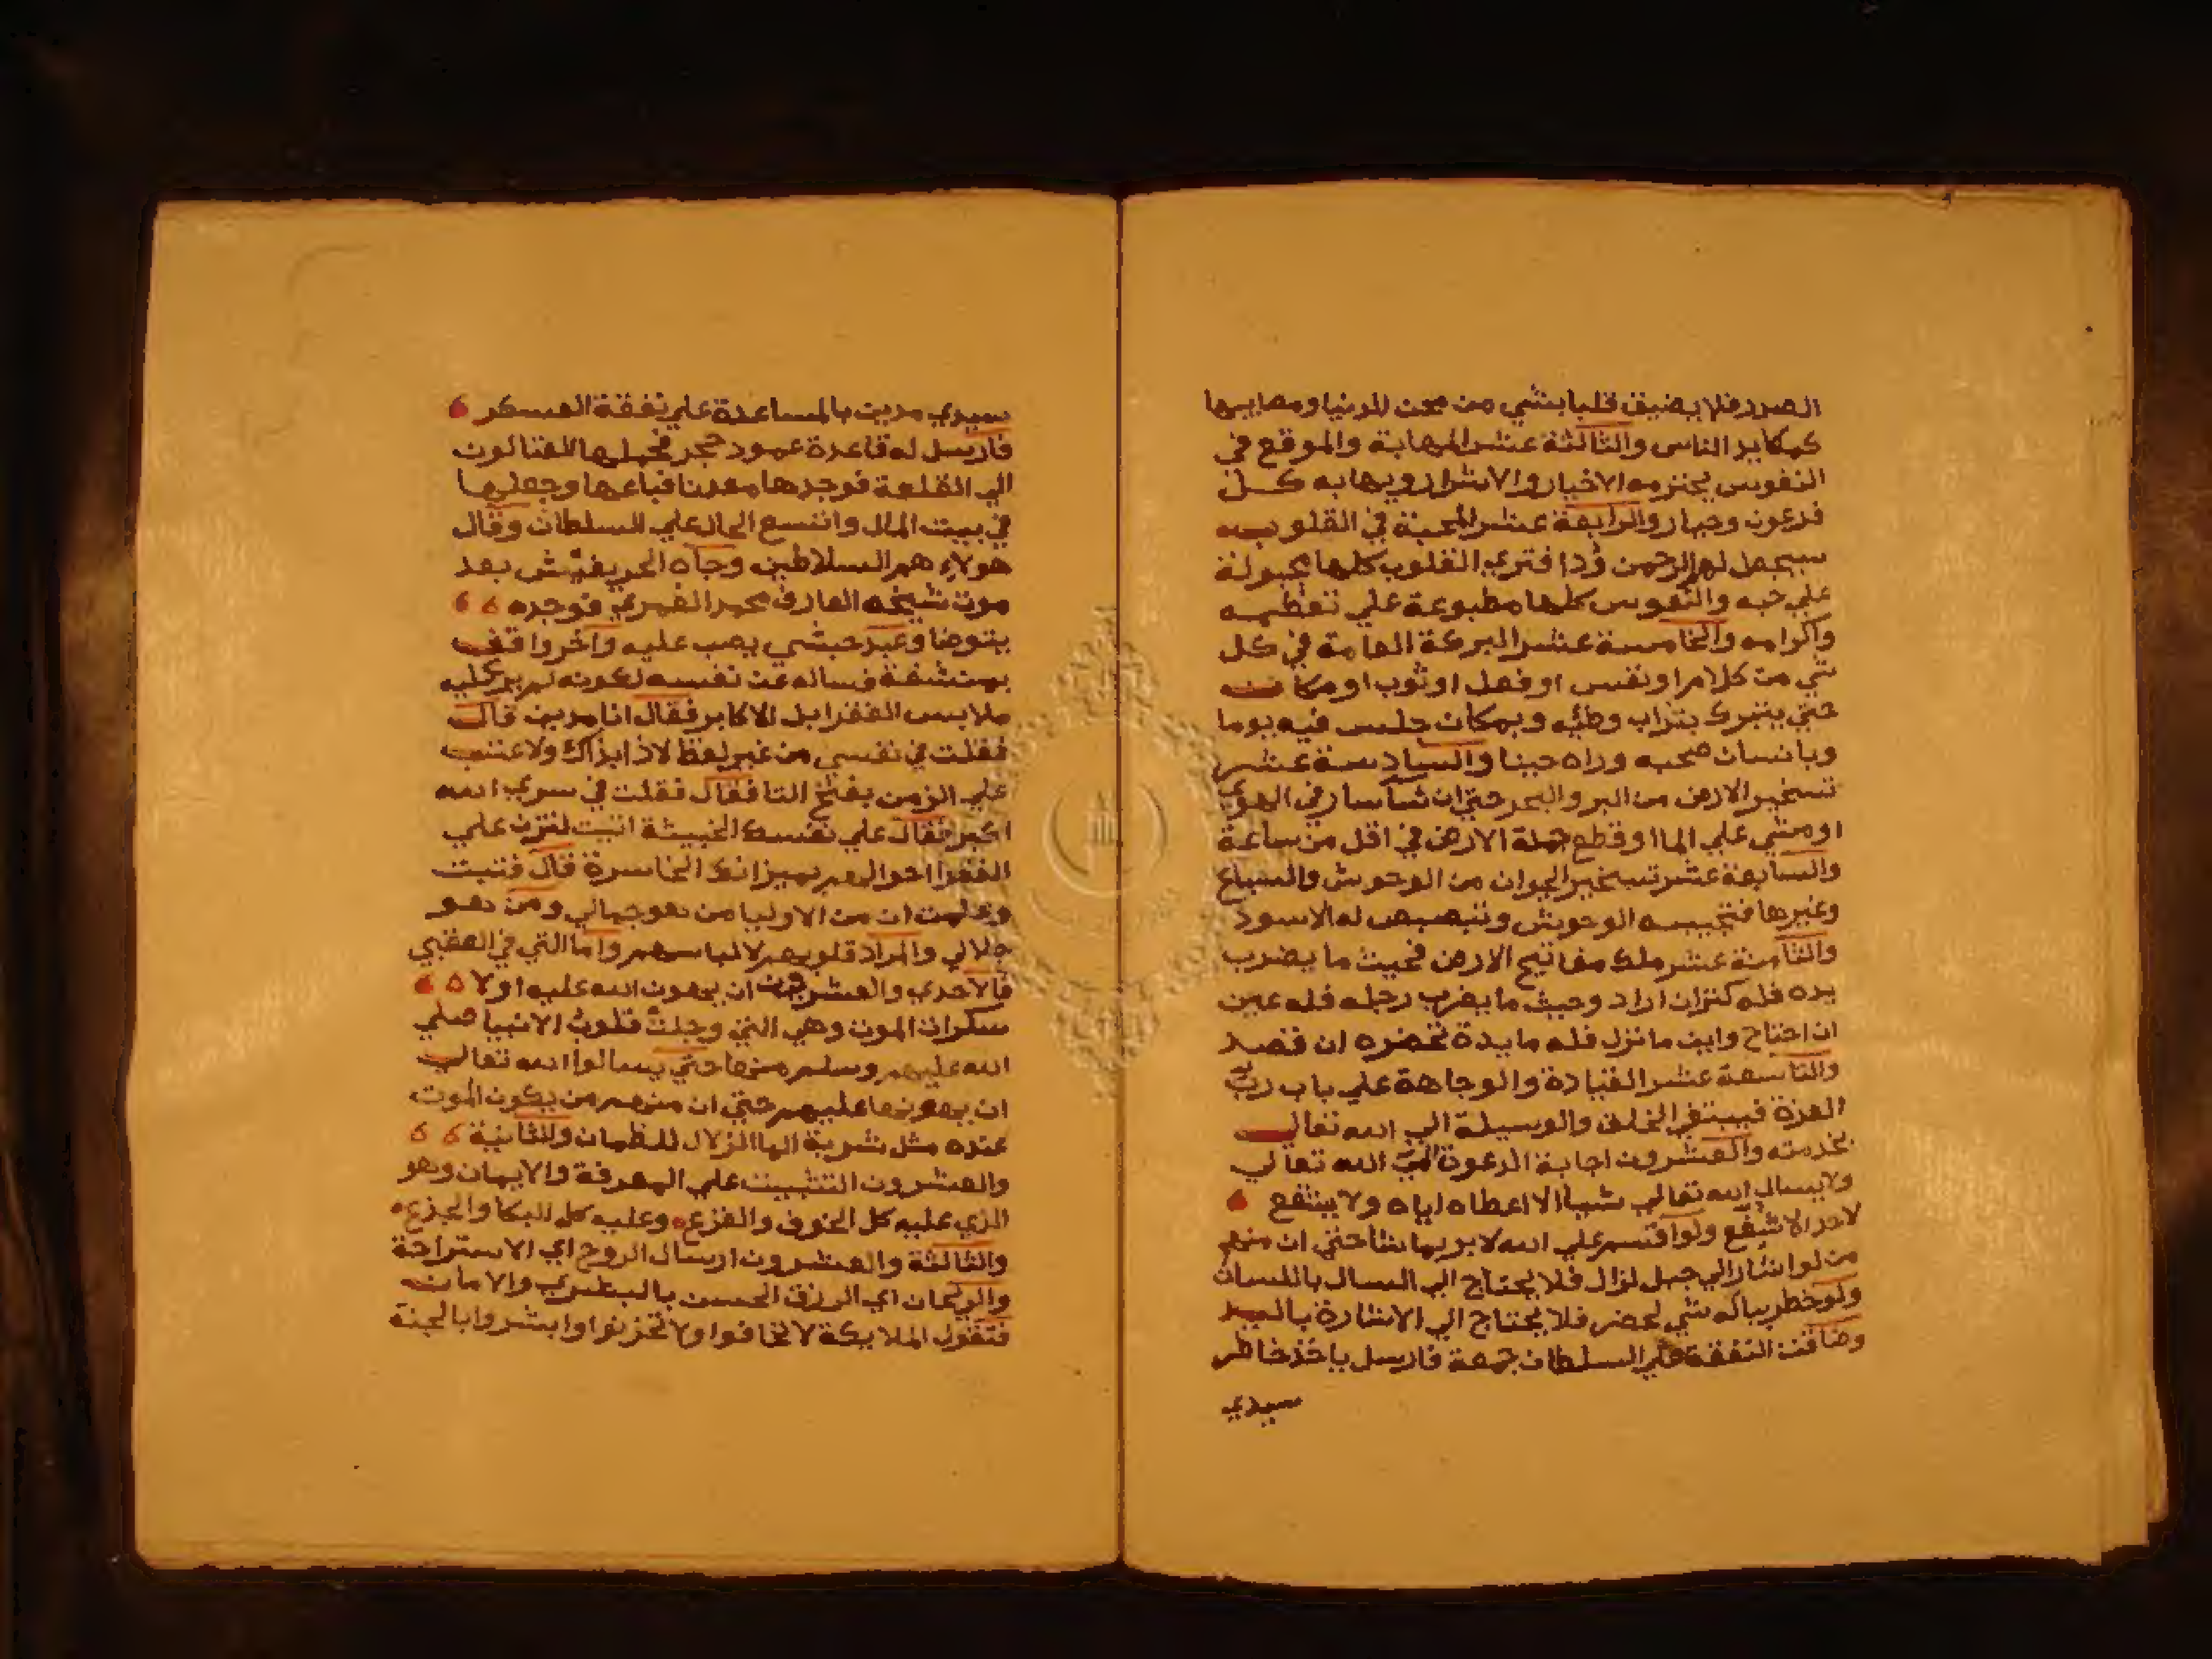 الصدر فلا يضيق قلبا بشي من محن الدنيا ومصايبها
كمكايد الناس والثالثة عشر المهابة والموقع في
النفوس يحترمه الاخيار والاشرار ويهابه كل
فرعون وجبار والرابعة عشر المحبة في القلوب
سيجعل لهم الرحمن ودا فتري القلوب كلها مجبولة
علي حبه والنفوس كلها مطبوعة علي تعظيمه
واكرامه والخامسة عشر البركة العامة في كل
شي من كلام او نفس او فعل او ثوب او مكان
حتي يتبرك بتراب وطيه وبمكان جلس فيه يوما
وبانسان صحبه وراه حينا والسادسة عشر
تسخير الارض من البر والبحر حتي ان شا سار في الهوي
او مشي علي الما او قطع جملة الارض في اقل من ساعة
والسابعة عشر تسخير الحيوان من الوحوش والسباع
وغيرها فتجيبه الوحوش وتبصبص له الاسود
والثامنة عشر ملك مفاتيح الارض فحيث ما يضرب
يده فله كنز ان اراد وحيث ما يضرب رجله فله عين
ان احتاج واين ما نزل فله مايدة تحضره ان قصد
والتاسعة عشر القيادة والوجاهة علي باب رب
العزة فيبتغي الخلق والوسيلة الي الله تعالي
بخدمته والعشرون اجابة الدعوة الي الله تعالي
ولا يسال الله تعالي شيا الا اعطاه اياه ولا يشفع
لاحد الا شفع ولو اقسم علي الله لابره بما شا حتي ان منهم
من لو اشار الي جبل لزال فلا يحتاج الي السال باللسان
ولو خطر بباله شي لحضر فلا يحتاج الي الاشارة باليد
وضاقت النفقة علي السلطان جمعة فارسل ياخذ خاطر
سيدي
سيدي مدين بالمساعدة علي نفقة العسكر
فارسل له قاعدة عمود حجر فحملها العتالون
الي القلعة فوجدها معدنا فباعها وجعلها
في بيت المال واتسع الحال علي السلطان وقال
هولاء هم السلاطين وجاه الحريفيش بعد
موت شيخه العارف محمد الغمري فوجده
يتوضا وعبد حبشي يصب عليه واخر واقف
بمنشفة فساله عن نفسه لكونه لم ير عليه
ملابس الفقرا بل الاكابر فقال انا مدين قال
فقلت في نفسي من غير لفظ لا ذا بذاك ولا عتب
علي الزمن بفتح التا فقال فقلت في سري الله
اكبر فقال علي نفسك الخبيثة اتيت لتزن علي
الفقرا احوالهم بميزانك الخاسرة قال فتبت
وعلمت ان من الاوليا من هو جمالي ومن هو
جلالي والمراد قلوبهم لا لباسهم واما التي في العقبي
فالاحدي والعشرون ان يهون الله عليه اولا
سكرات الموت وهي التي وجلت قلوب الانبيا صلي
الله عليهم وسلم منها حتي يسالوا الله تعالي
ان يهونها عليهم حتي ان منهم من يكون الموت
عنده مثل شربة الما الزلال للظمان والثانية
والعشرون التثبيت علي المعرفة والايمان وهو
الذي عليه كل الخوف والفزع وعليه كل البكا والجزع
والثالثة والعشرون ارسال الروح اي الاستراحة
والريحان اي الرزق الحسن بالبشري والامان
فتقول الملايكة لا تخافوا ولا تحزنوا وابشروا بالجنة